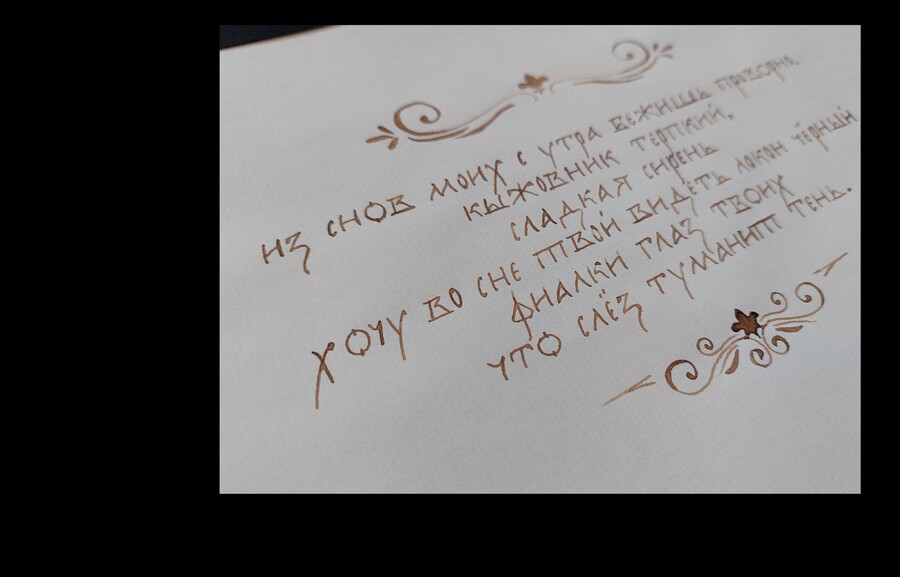 из снов моих с утра бежишь проворно.
кыжовник терпкий,
сладкая сирень
хочу во сне твой видеть локон чёрный
фиалки глаз твоих
что слёз туманит тень.